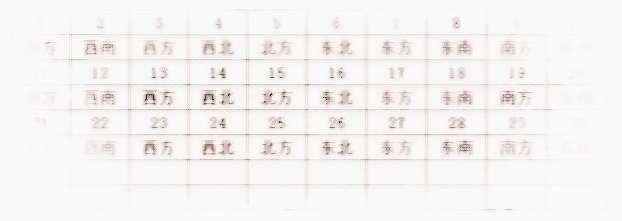 2 3 4 5 6 7 8
西南 西方 西北 北方 东北 东方 东南 南方
12 13 14 15 16 17 18 19
西南 西方 西北 北方 东北 东方 东南 南方
22 23 24 25 26 27 28 29
西南 西方 西北 北方 东北 东方 东南 南方